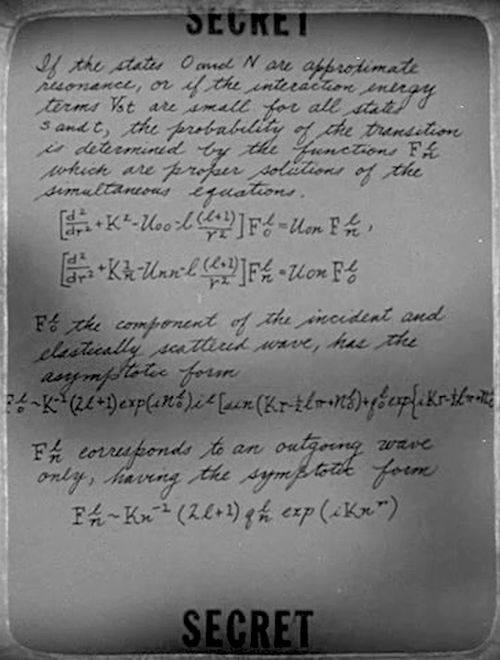 SECRET
If the states O and N are approximate
resonance, or if the interaction energy
terms Vst are small for all states
s and t, the probability of the transition
is determined by the functions Fₙˡ
which are proper solutions of the
simultaneous equations.
[d²/dr² + K² - U₀₀ - l (l+1)/r²] F₀ˡ = U₀ₙ Fₙˡ,
[d²/dr² + Kₙ² - Uₙₙ - l (l+1)/r²] Fₙˡ = U₀ₙ F₀ˡ
F₀ˡ the component of the incident and
elastically scattered wave, has the
asymptotic form
F₀ˡ ~ K⁻¹ (2l+1) exp(in₀ˡ) iˡ [sin (Kr - ½lπ + n₀ˡ) + q₀ˡ exp{iKr - ½lπ + n₀ˡ
Fₙˡ corresponds to an outgoing wave
only, having the symptotic form
Fₙˡ ~ Kn⁻¹ (2l+1) qₙˡ exp (iKnʳ)
SECRET